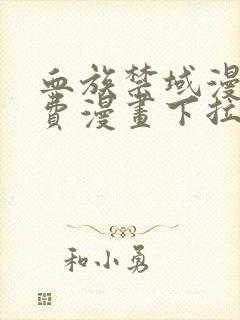 血族禁域漫
費漫畫下拉
和小勇